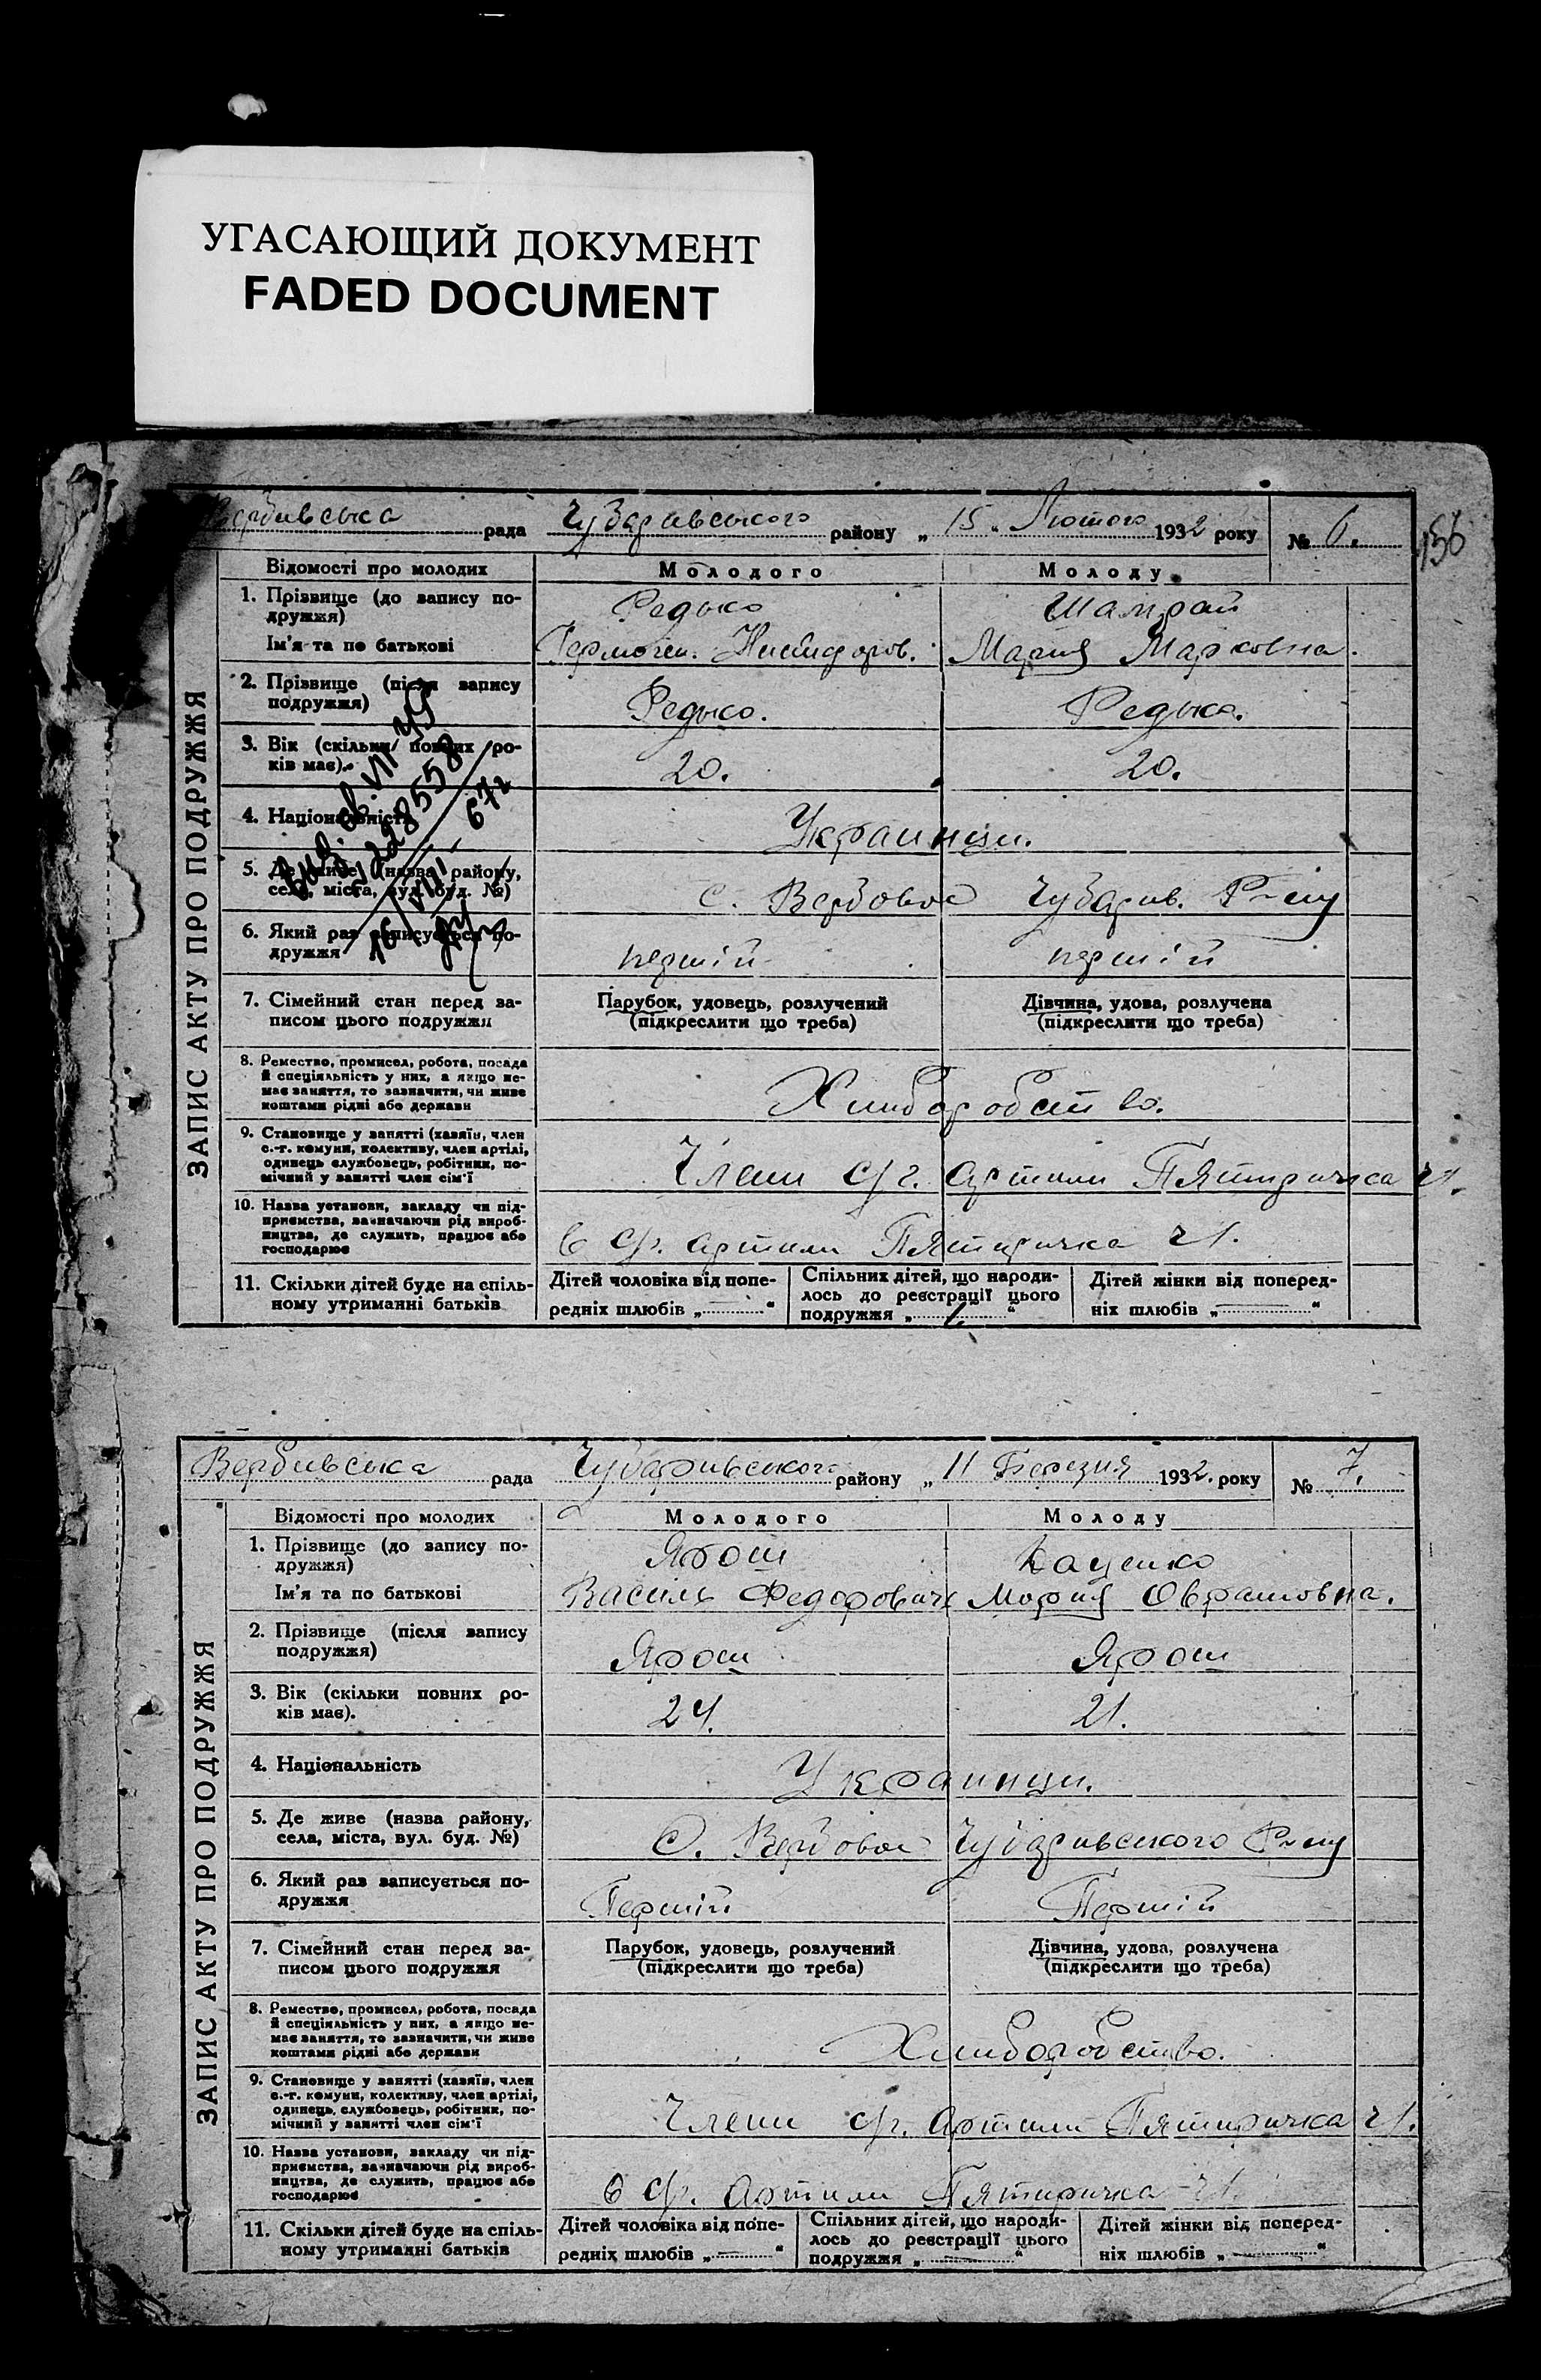 УГАСАЮЩИЙ ДОКУМЕНТ
FADED DOCUMENT
Вербивська рада Чубаривського району „ 15 „ Лютого 1932 року № 6.
156
ЗАПИС АКТУ ПРО ПОДРУЖЖЯ
Відомості про молодих Молодого Молоду
1. Прізвище (до запису по-
дружжя) Редько Шамрай
Ім'я та по батькові Гермоген. Никифоров. Мария Марковна.
2. Прізвище (після запису
подружжя) Редько. Редько.
3. Вік (скільки повних ро-
ків має). 20. 20.
4. Національність Украинци.
5. Де живе (назва району,
села, міста, вул. буд. №) с. Вербовое Чубарив. Р-ну
6. Який раз записується по-
дружжя першій першій
7. Сімейний стан перед за-
писом цього подружжя
Парубок, удовець, розлучений
(підкреслити що треба)
Дівчина, удова, розлучена
(підкреслити що треба)
8. Ремество, промисел, робота, посада
й спеціяльність у них, а якщо не-
має заняття, то зазначити, чи живе
коштами рідні або держави
Хлиборобство.
9. Становище у занятті (хазяїн, член
с.-г. комуни, колективу, член артілі,
одинець службовець, робітник, по-
мічний у занятті член сім'ї
Члени с/г. артили Пятиричка ч1.
10. Назва установи, закладу чи під-
приємства, зазначаючи рід вироб-
ництва, де служить, працює або
господарює
в с/г. артили Пятиричка ч1.
11. Скільки дітей буде на спіль-
ному утриманні батьків
Дітей чоловіка від попе-
редніх шлюбів „ — “
Спільних дітей, що народи-
лось до реєстрації цього
подружжя „ “
Дітей жінки від поперед-
ніх шлюбів „ — “
Вербивська рада Чубаривського району „ 11 Березня 1932. року № 7.
ЗАПИС АКТУ ПРО ПОДРУЖЖЯ
Відомості про молодих Молодого Молоду
1. Прізвище (до запису по-
дружжя) Ярош Каценко
Ім'я та по батькові Василь Федорович Мария Оврамовна.
2. Прізвище (після запису
подружжя) Ярош Ярош
3. Вік (скільки повних ро-
ків має). 24. 21.
4. Національність Украинци.
5. Де живе (назва району,
села, міста, вул. буд. №) С. Вербовое Чубаривського Р-ну
6. Який раз записується по-
дружжя Першій Першій
7. Сімейний стан перед за-
писом цього подружжя
Парубок, удовець, розлучений
(підкреслити що треба)
Дівчина, удова, розлучена
(підкреслити що треба)
8. Ремество, промисел, робота, посада
й спеціяльність у них, а якщо не-
має заняття, то зазначити, чи живе
коштами рідні або держави
Хлиборобство.
9. Становище у занятті (хазяїн, член
с.-г. комуни, колективу, член артілі,
одинець, службовець, робітник, по-
мічний у занятті член сім'ї
Члени с/г. Артили Пятиричка ч1.
10. Назва установи, закладу чи під-
приємства, зазначаючи рід вироб-
ництва, де служить, працює або
господарює
в с/г. Артили Пятиричка ч1.
11. Скільки дітей буде на спіль-
ному утриманні батьків
Дітей чоловіка від попе-
редніх шлюбів „ — “
Спільних дітей, що народи-
лось до реєстрації цього
подружжя „ — “
Дітей жінки від поперед-
ніх шлюбів „ — “